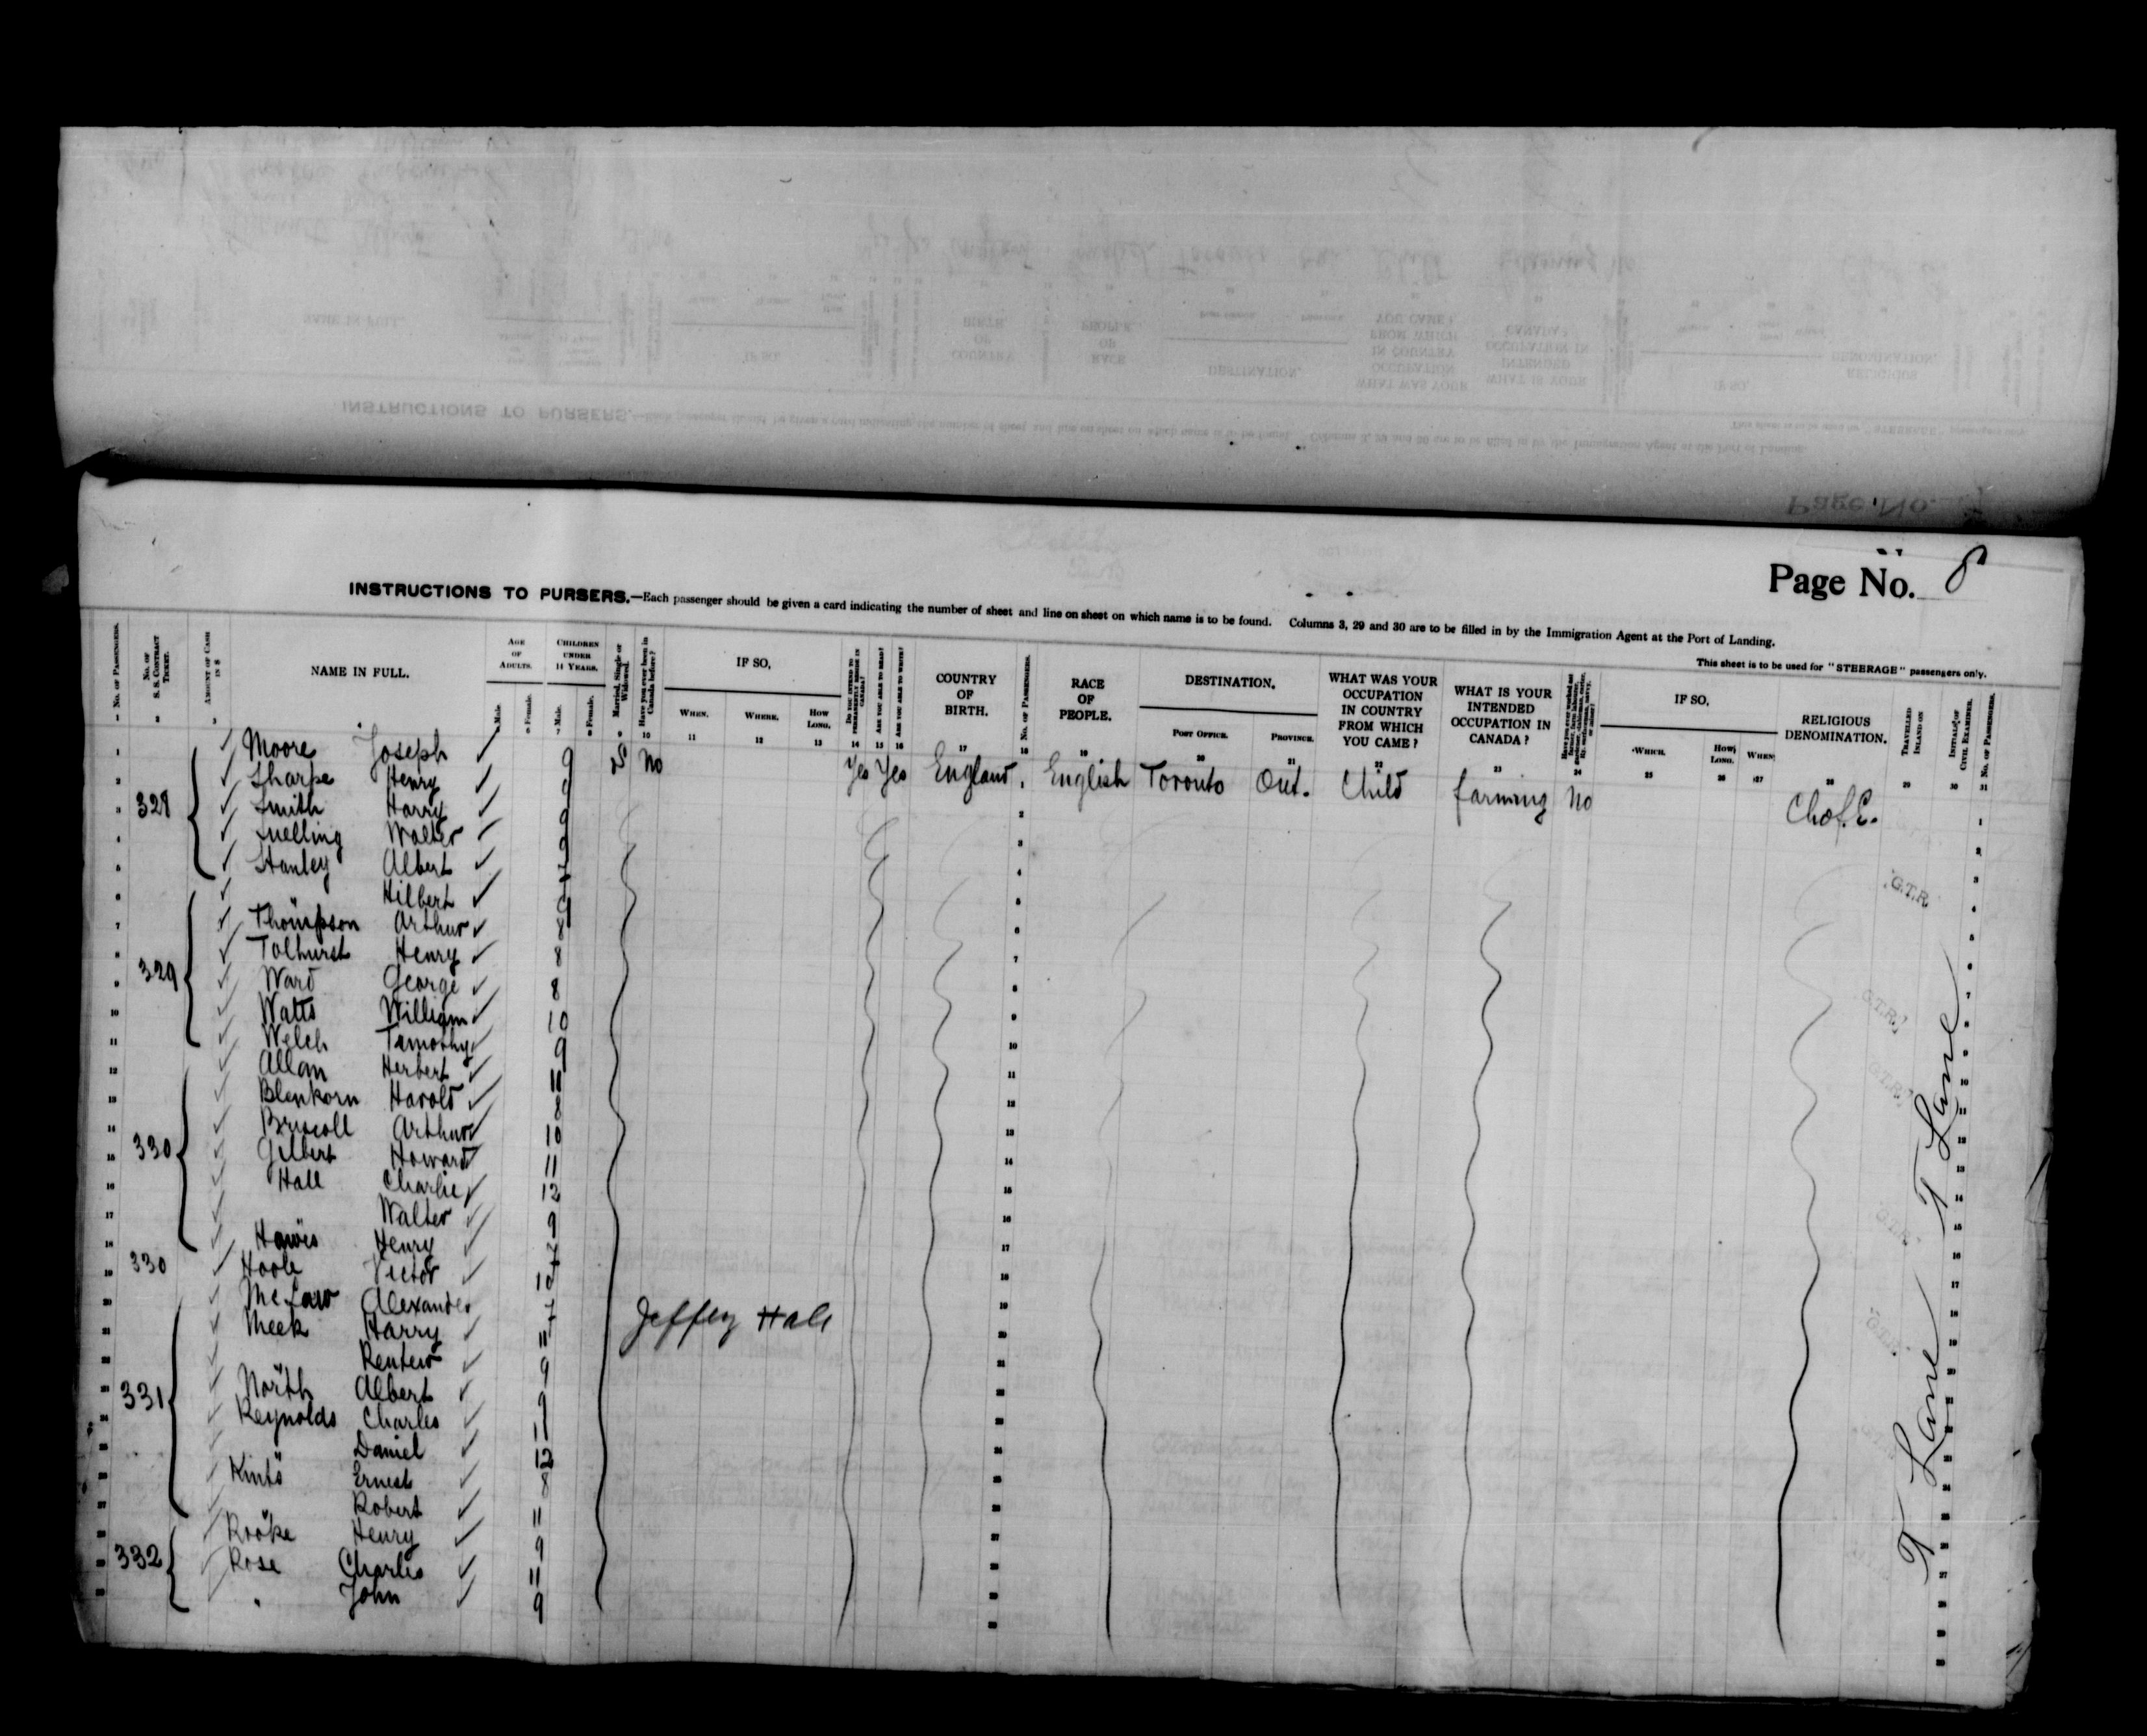 Page No. 8
INSTRUCTIONS TO PURSERS.—Each passenger should be given a card indicating the number of sheet and line on sheet on which name is to be found. Columns 3, 29 and 30 are to be filled in by the Immigration Agent at the Port of Landing.
This sheet is to be used for "STEERAGE" passengers only.
No. of Passengers. No. of S. S. Contract Ticket. Amount of Cash in $ NAME IN FULL. Age of Adults. Male. Female. Children under 11 Years. Male. Female. Married, Single or Widowed. Have you ever been in Canada before? IF SO, When. Where. How Long. Do you intend to permanently reside in Canada? Are you able to read? Are you able to write? COUNTRY OF BIRTH. No. of Passengers. RACE OF PEOPLE. DESTINATION. Post Office. Province. WHAT WAS YOUR OCCUPATION IN COUNTRY FROM WHICH YOU CAME? WHAT IS YOUR INTENDED OCCUPATION IN CANADA? IF SO, Which. How Long. When. RELIGIOUS DENOMINATION. Travelled Inland on Initials of Civil Examiner. No. of Passengers.
1 Moore Joseph 9 S No Yes Yes England 1 English Toronto Ont. Child farming No Ch of E.
2 Sharpe Henry 9
3 328 Smith Harry 9
4 Snelling Walter 9
5 Stanley Albert 7
6 Hilbert 9
7 Thompson Arthur 8
8 Tolhurst Henry 8
9 329 Ward George 8
10 Watts William 10
11 Welch Timothy 9
12 Allan Herbert 11
13 Blenkorn Harold 8
14 Briscoll Arthur 10
15 330 Gilbert Howard 11
16 Hall Charlie 12
17 " Walter 9
18 Hawes Henry 7
19 330 Hoole Victor 10
20 Alexander 7 Jeffey Hall
21 Meek Harry 11
22 " 9
23 331 North Albert 9
24 Reynolds Charles 11
25 " Daniel 12
26 Ernest 8
27 " Robert 11
28 Rooke Henry 9
29 332 Rose Charles 11
30 " John 9
G.T.R.
G.T.R.
G.T.R.
G.T.R.
G.T.R.
T Lane
T Lane